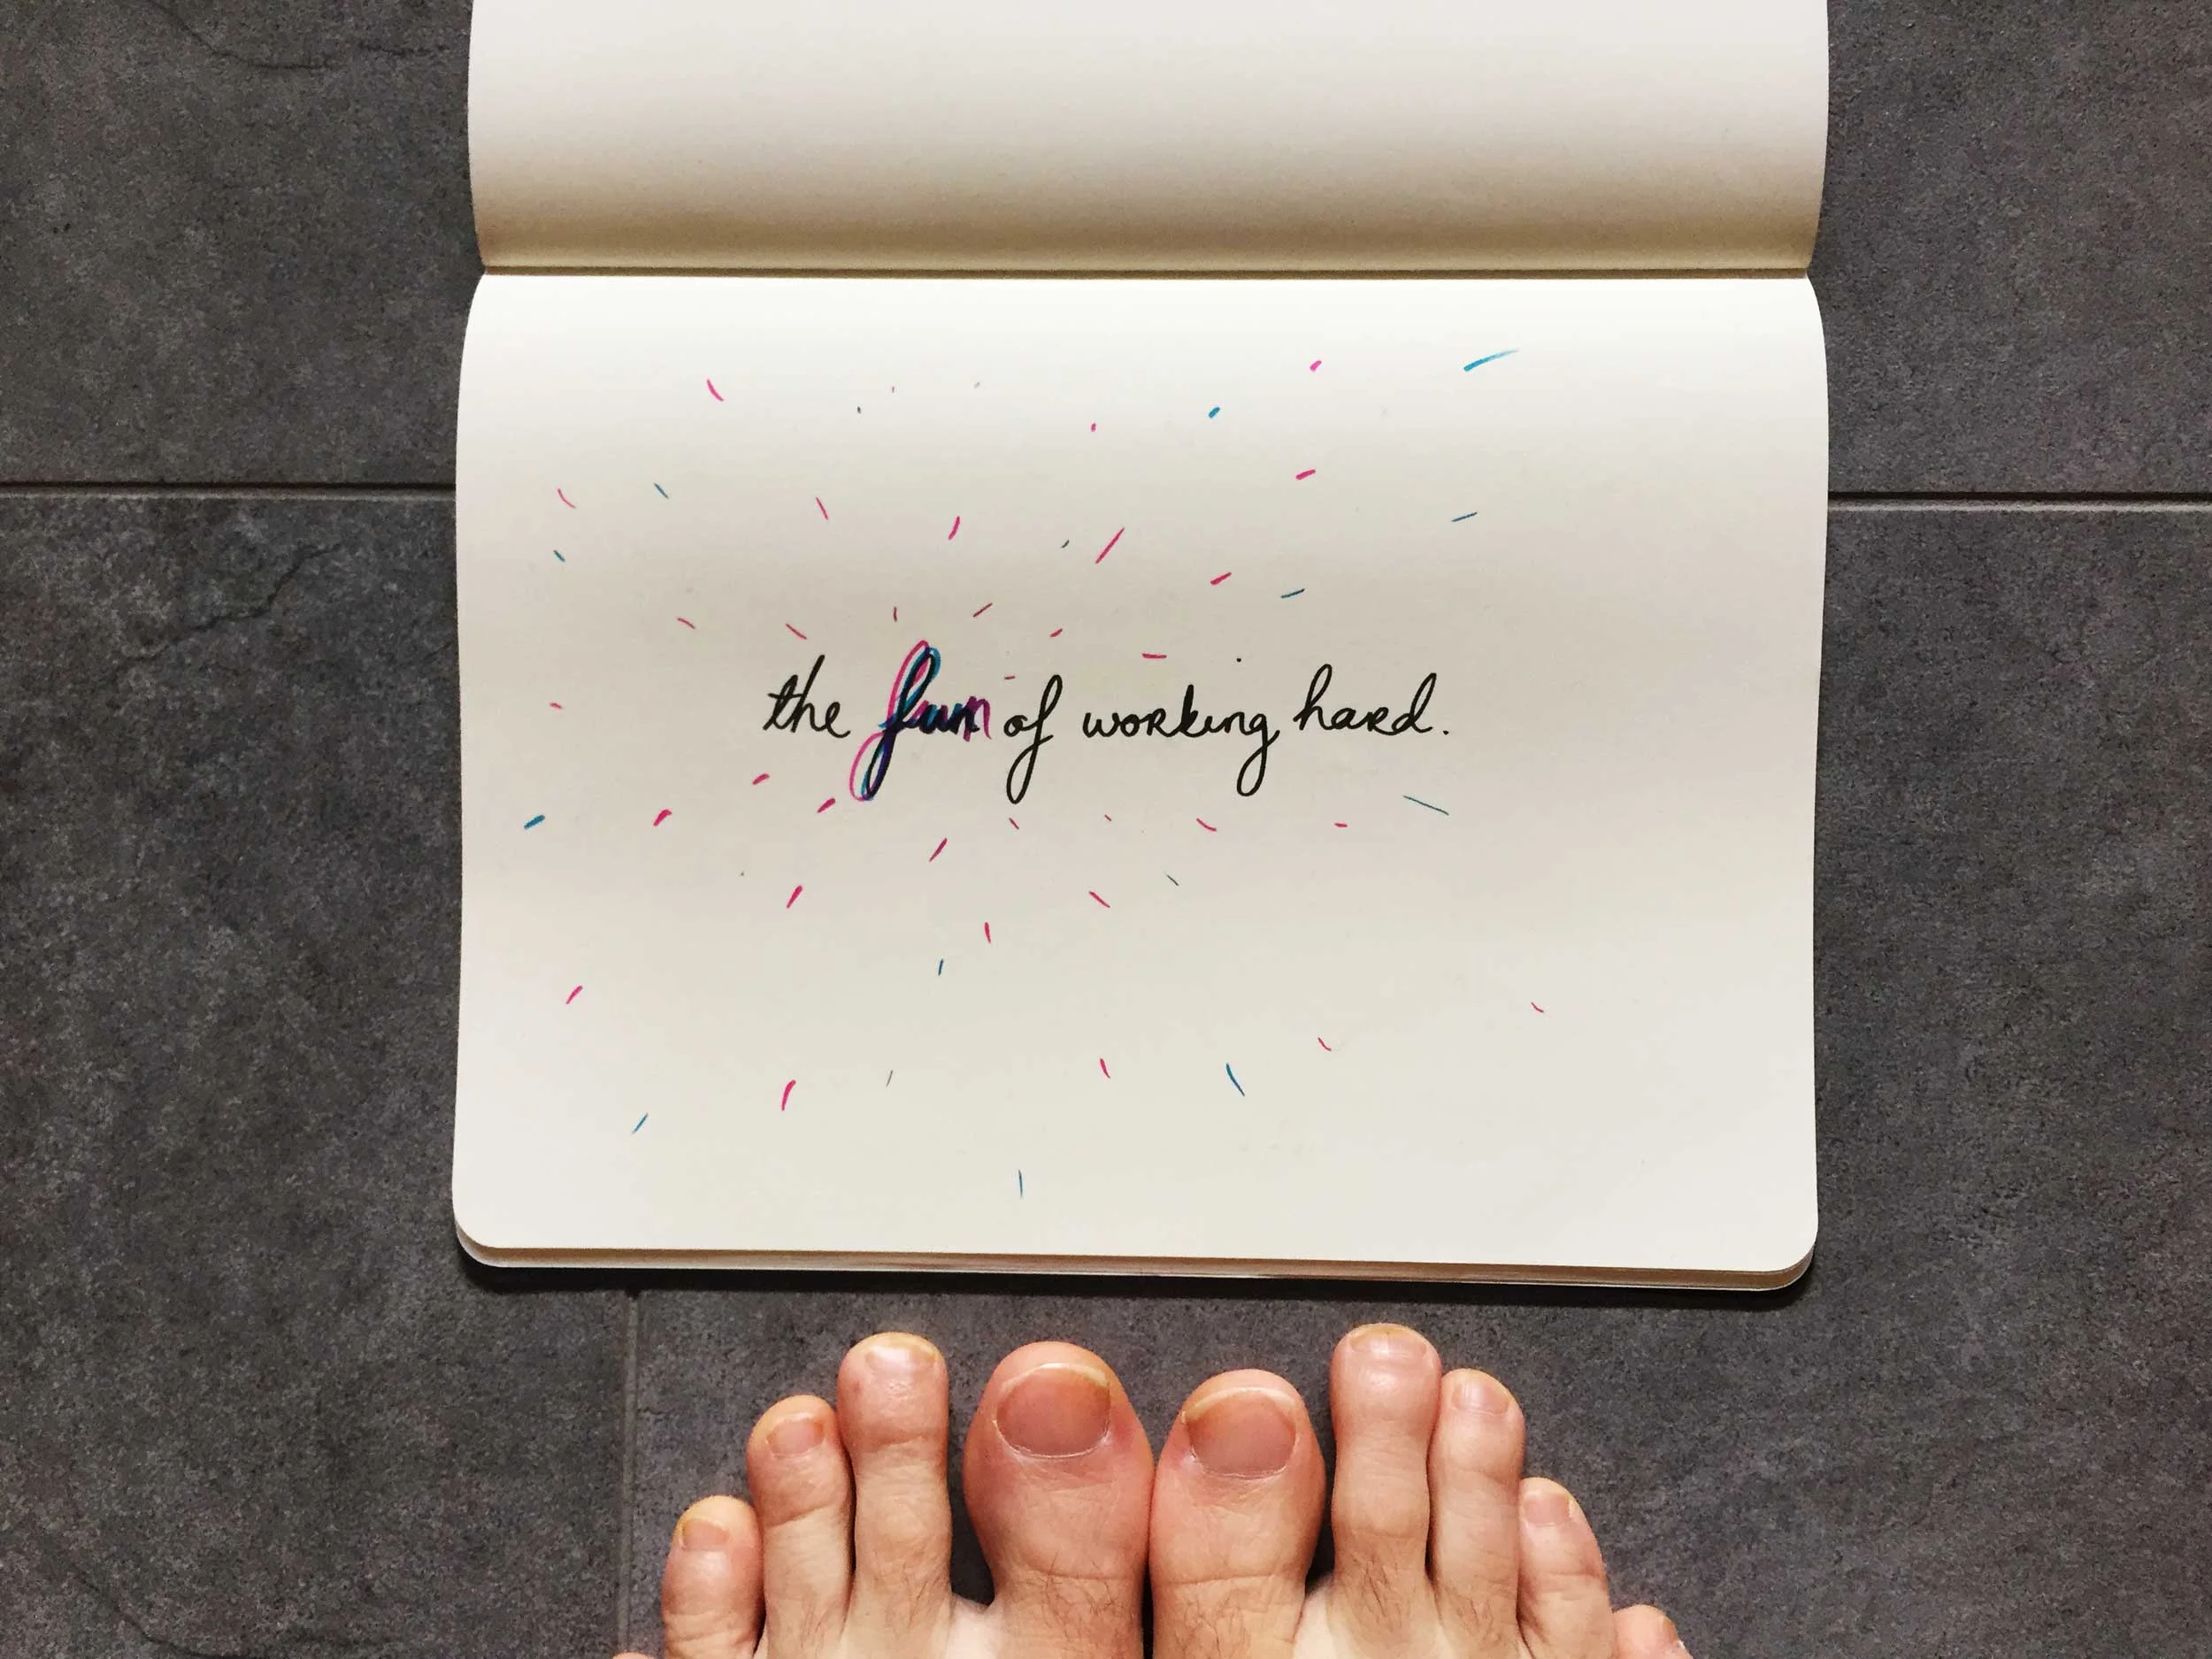 the fun of working hard.